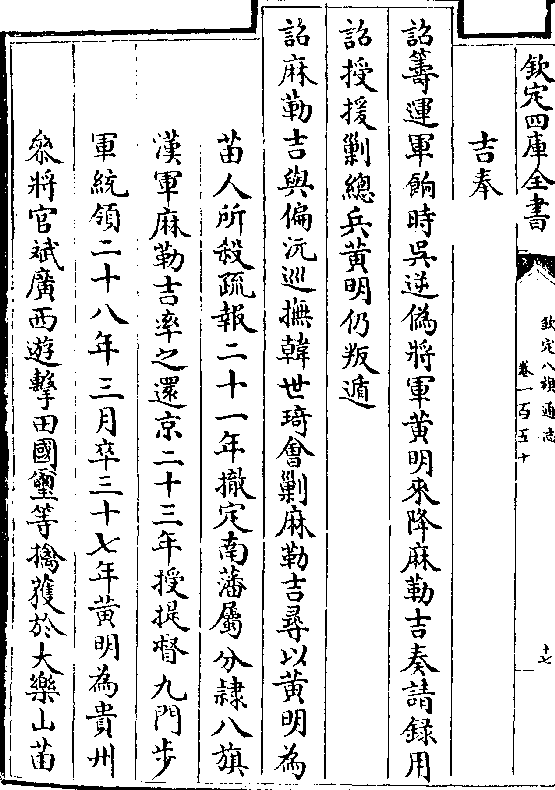 欽定四庫全書
欽定八旗通志
卷一百五十
十七
吉奉
詔籌運軍餉時吳逆偽將軍黃明來降麻勒吉奏請録用
詔授援剿總兵黃明仍叛遁
詔麻勒吉與偏沅巡撫韓世琦會剿麻勒吉尋以黃明為
苗人所殺疏報二十一年撤定南藩屬分隷八旗
漢軍麻勒吉率之還京二十三年授提督九門步
軍統領二十八年三月卒三十七年黃明為貴州
叅將官斌廣西遊擊田國璽等擒獲於大樂山苗